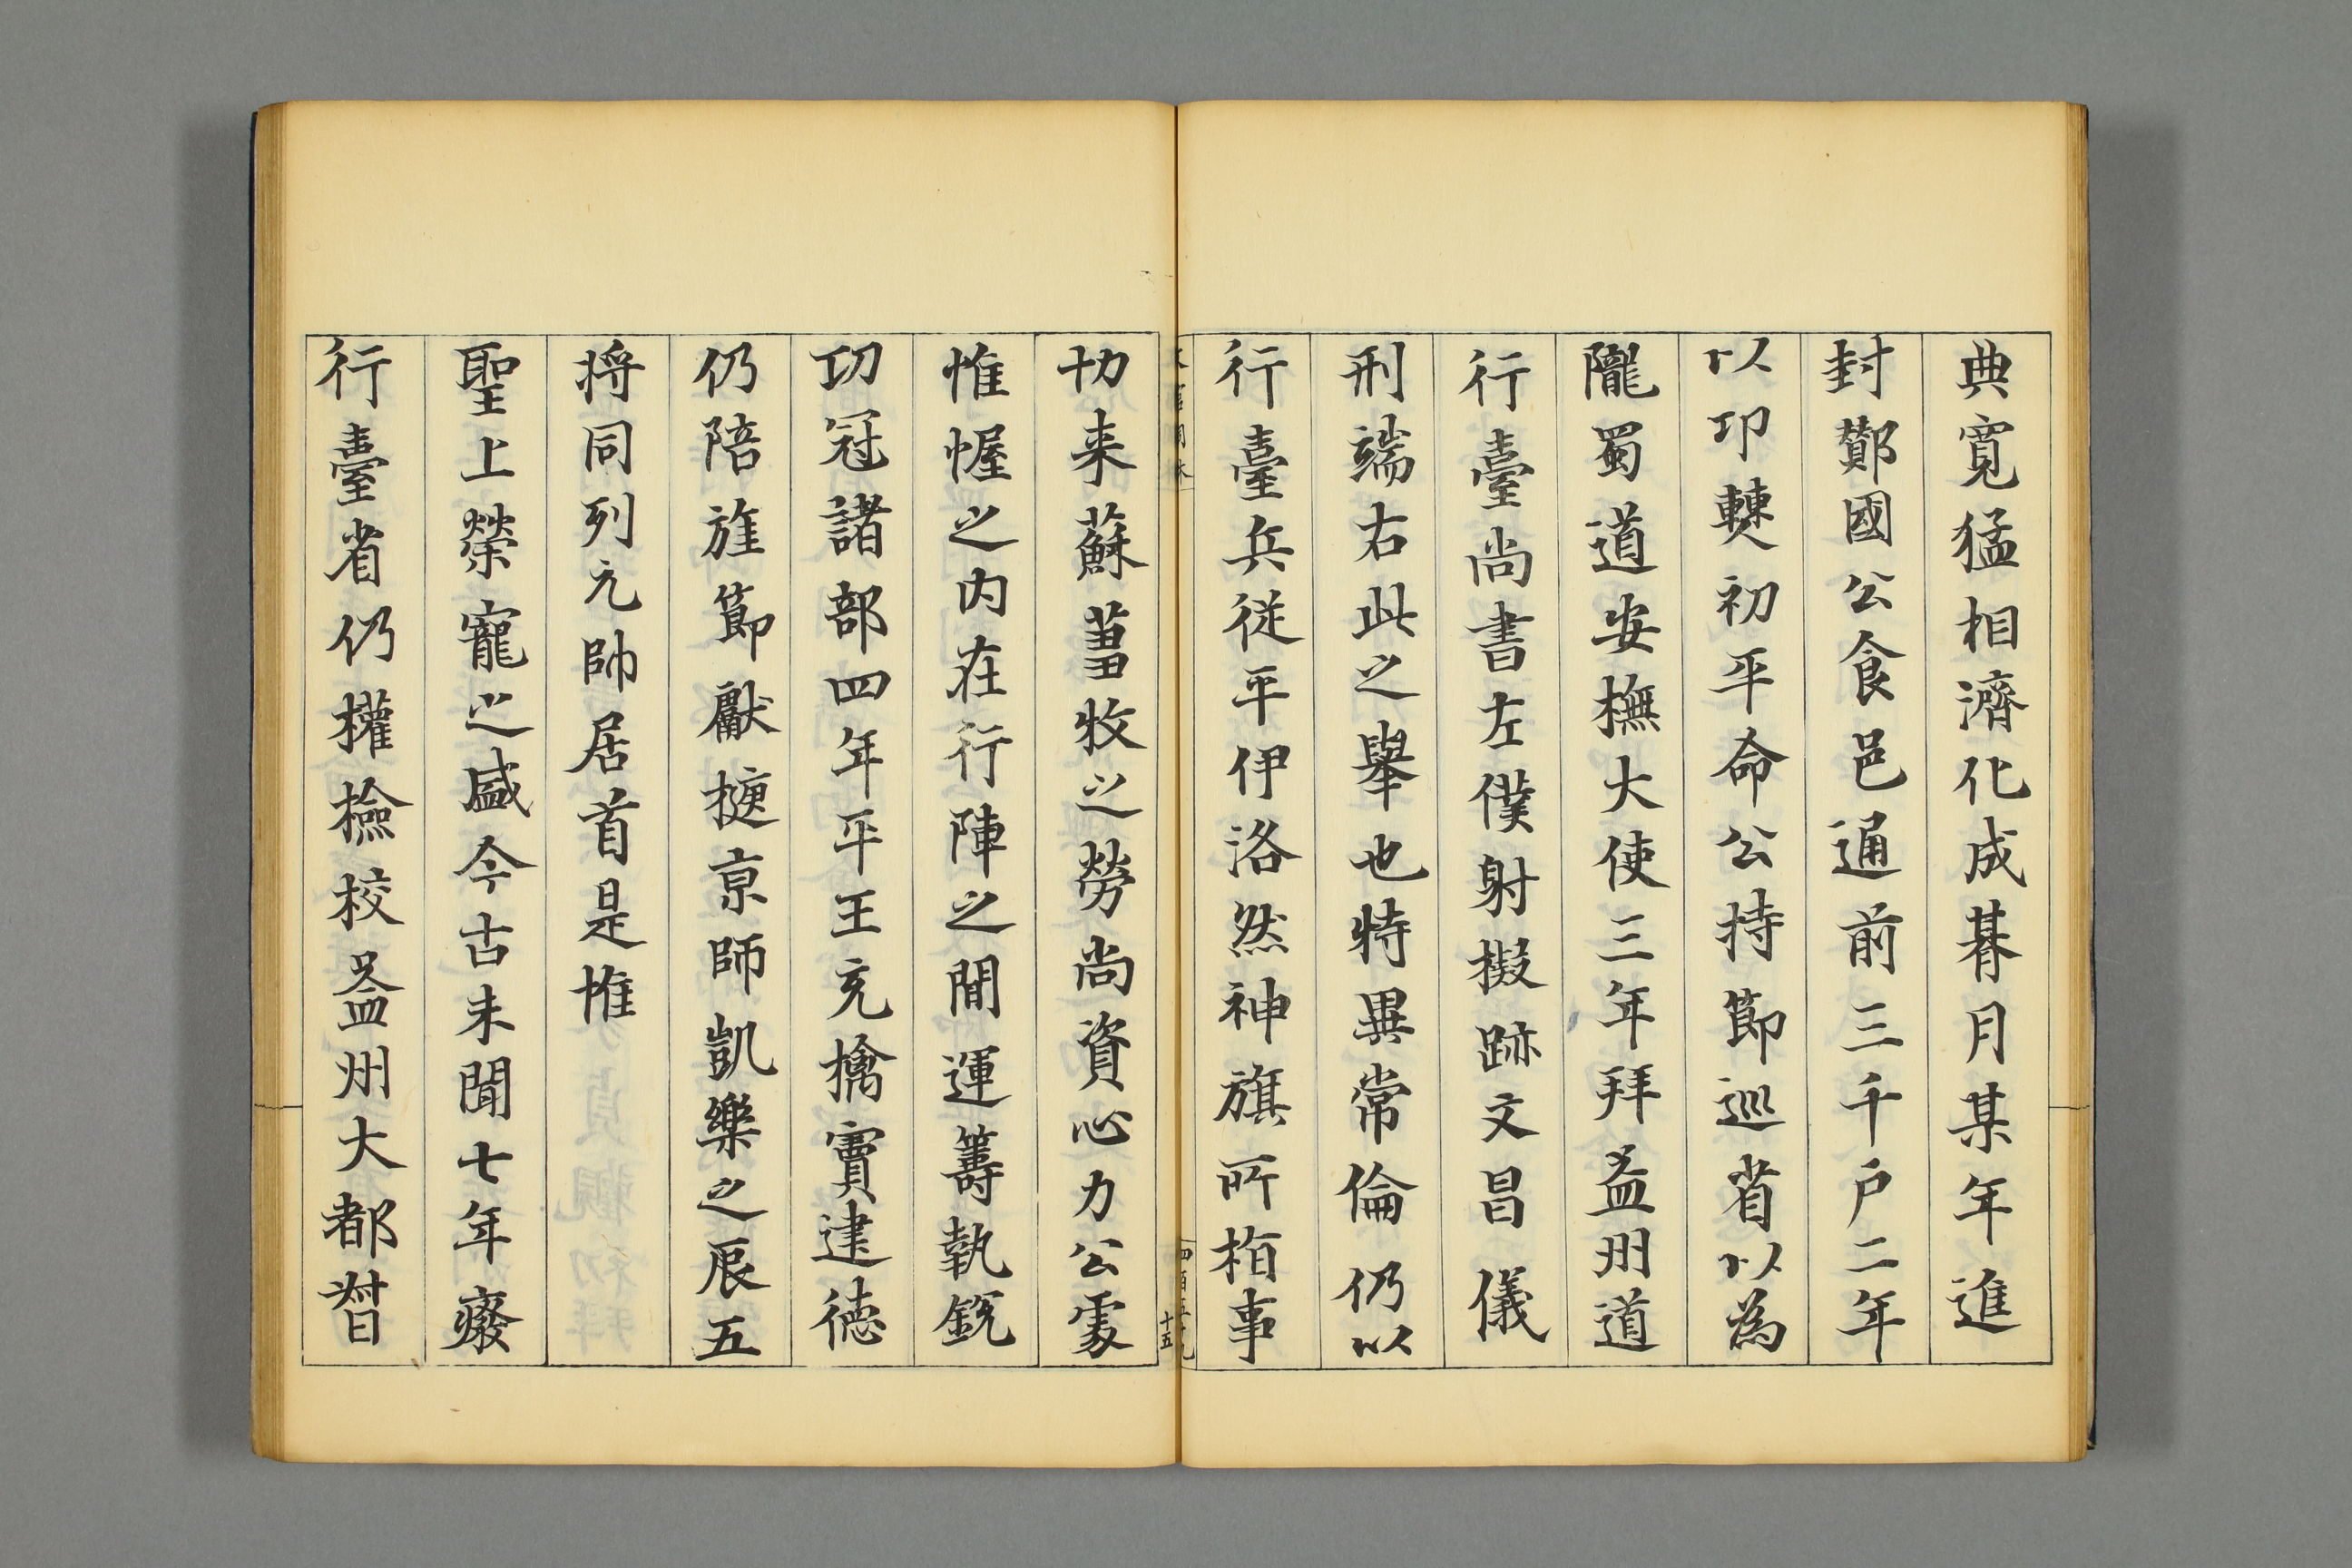 典寬猛相濟化成朞月某年進
封鄼國公食邑通前三千戶二年
以卭僰初平命公持節巡省以為
隴蜀道安橅大使三年拜益州道
行臺尚書左僕射掇跡文昌儀
刑端右此之舉也特異常倫仍以
行臺兵從平伊洛然神旗所栺事
切来蘇葍牧之勞尚資心力公處
惟幄之内在行陣之間運籌執銳
功冠諸部四年平王充擒竇建德
仍陪旌節獻捷京師凱樂之辰五
将同列元帥居首是惟
聖上榮寵之盛今古未聞七年癈
行臺省仍權撿校益州大都督
十五